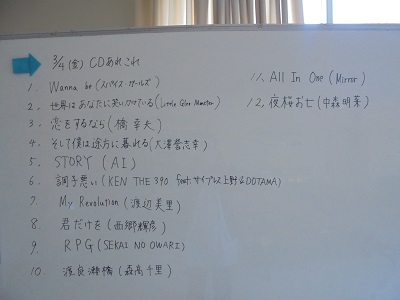 3/4(金) CDあれこれ
1. Wanna be (スパイス・ガールズ)
2. 世界はあなたに笑いかけている (Little Glee Monster)
3. 恋をするなら (橋幸夫)
4. そして僕は途方に暮れる (大澤誉志幸)
5. STORY (AI)
6. 調子悪い (KEN THE 390 feat. サイプレス上野&DOTAMA)
7. My Revolution (渡辺美里)
8. 君だけを (西郷輝彦)
9. RPG (SEKAI NO OWARI)
10. 渡良瀬橋 (森高千里)
11. All In One (Mirror)
12. 夜桜お七 (中森明菜)